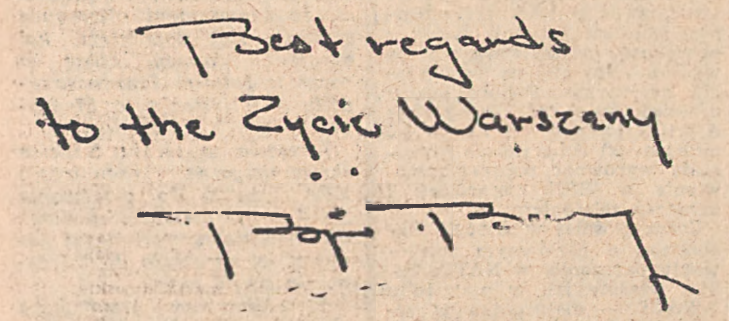 Best regards
to the Zycie Warszawy